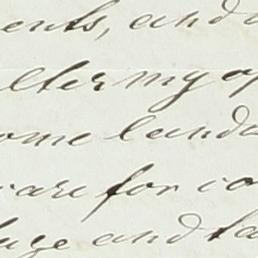 ents, and
lter my op
ome landa
care for co
huge and fa